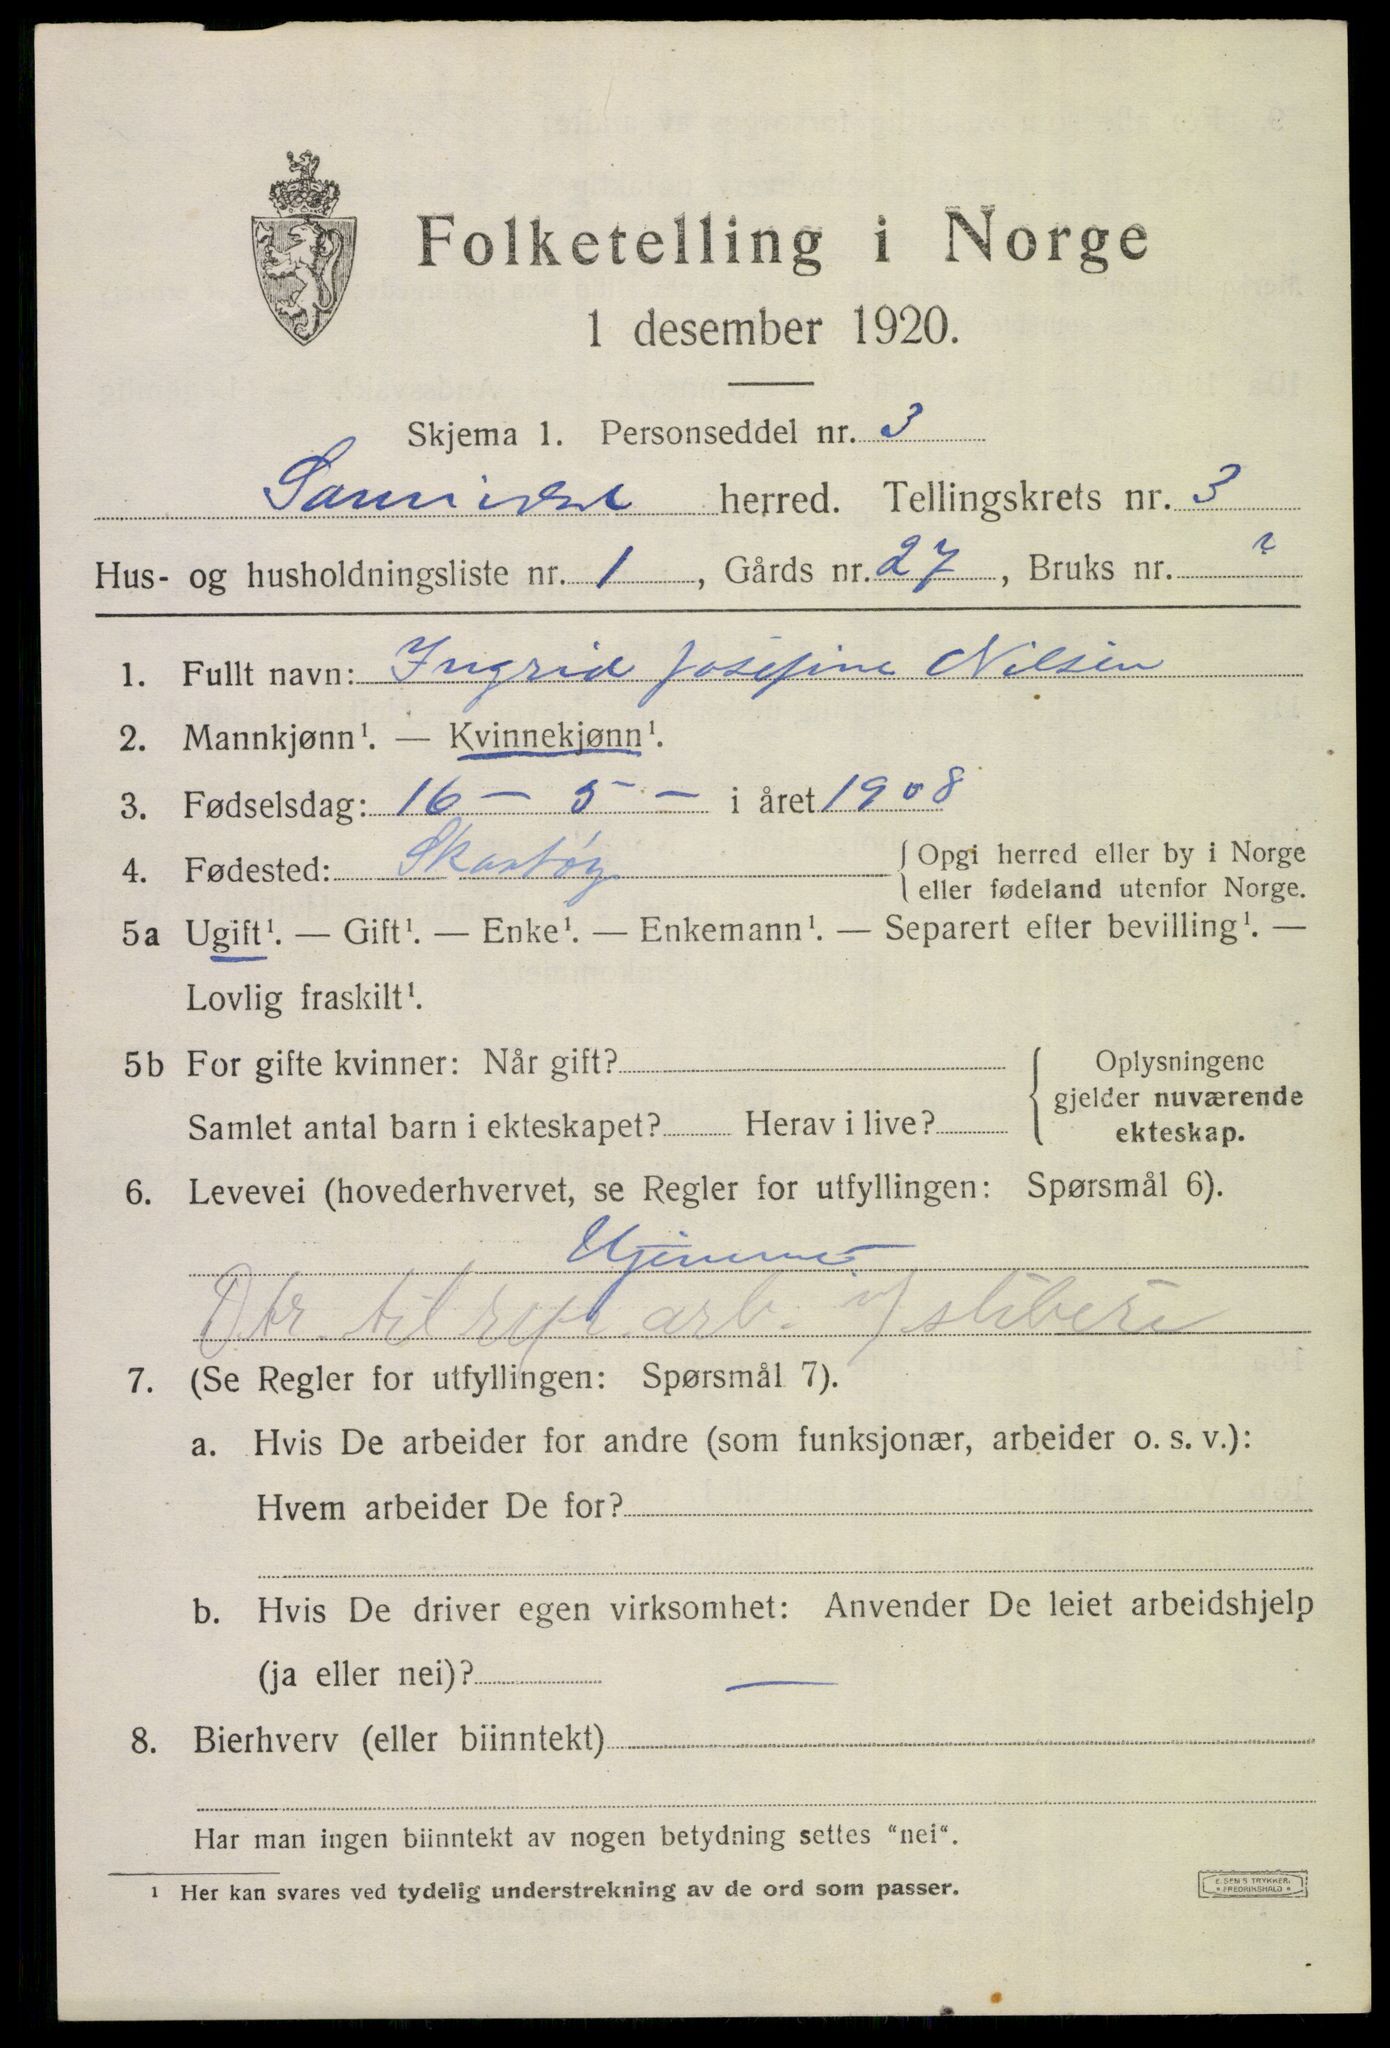 Folketelling i Norge
1 desember 1920.
Skjema 1. Personseddel nr. 3
Sannidal herred. Tellingskrets nr. 3
Hus- og husholdningsliste nr. 1, Gårds nr. 27, Bruks nr. ?
1. Fullt navn: Ingrid Josefine Nilsen
2. Mannkjønn¹. — Kvinnekjønn¹.
3. Fødselsdag: 16 — 5 — i året 1908
4. Fødested: Skaatøy { Opgi herred eller by i Norge
eller fødeland utenfor Norge.
5a Ugift¹. — Gift¹. — Enke¹. — Enkemann¹. — Separert efter bevilling¹. —
Lovlig fraskilt¹.
5b For gifte kvinner: Når gift? { Oplysningene
gjelder nuværende
Samlet antal barn i ekteskapet? Herav i live? ekteskap.
6. Levevei (hovederhvervet, se Regler for utfyllingen: Spørsmål 6).
Hjemme
Dtr. til rep. arb. v/ sliberi
7. (Se Regler for utfyllingen: Spørsmål 7).
a. Hvis De arbeider for andre (som funksjonær, arbeider o. s. v.):
Hvem arbeider De for?
b. Hvis De driver egen virksomhet: Anvender De leiet arbeidshjelp
(ja eller nei)? —
8. Bierhverv (eller biinntekt)
Har man ingen biinntekt av nogen betydning settes "nei".
¹ Her kan svares ved tydelig understrekning av de ord som passer.
E. SEM'S TRYKKER.
* FREDRIKSHALD *